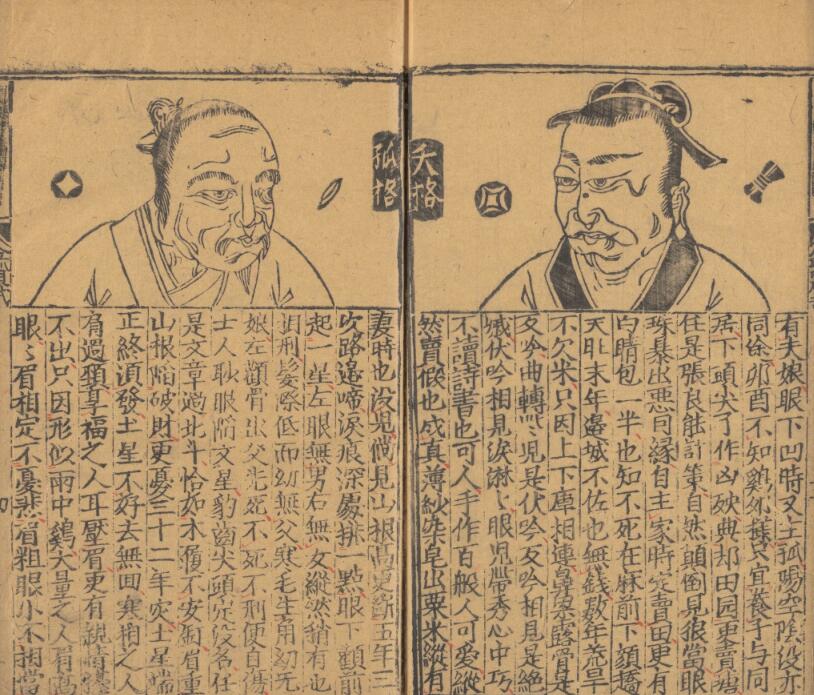 夭格
有夫娘眼下凹時又主孤陽空陰没亦
同餘卯酉不知鷄卵樣只宜養子与同
居下頭尖了作凶殃典却田园更賣
任是張良能計策自然顛倒見狼當眼
珠暴出惡因緣自主家時定賣田更有
白睛包一半也知不死在麻前下頦撟
天旺末年邉城不佐也無錢数年荒旱
不欠米只因上下庫相連鼻梁露骨是
反吟曲轉些児是伏吟反吟相見是絕
滅伏吟相見淚淋々眼児帶秀心中巧
不讀詩書也可人手作百般人可愛縱
然賣假也成真薄紗染皂出粟米縱有
孤格
妻時也没児倘見山根高更斷五年三
次路邉啼淚痕深處排一點眼下顴前
起一星左眼無男右無女縱然稍有也
相刑髮際低而幼無父寒毛生角幼无
娘左顴骨出父先死不死不刑便自傷
士人耿眼陷文星豹齒尖頭定没名任
是文章過北斗恰如木履不安眉重
山根陷破財更憂三十二年灾土星端
正終須發土星不好去無回寒相之人
肩過頸享福之人耳壓眉更有親情
不出只因形似雨中鷄大量之人眉高
眼々眉相定不憂悲眉粗眼小不相當